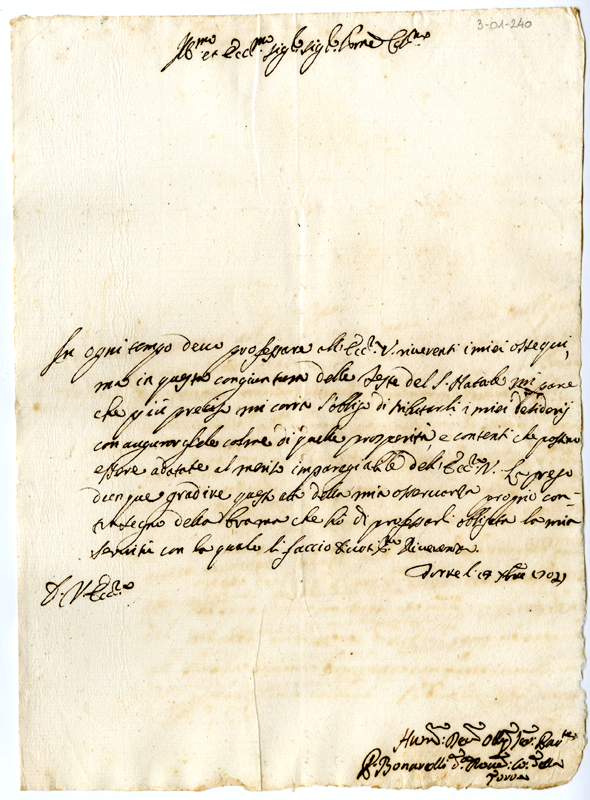 3-01-240
Ill.mo et Ecc.mo Sig.r Sig.r Prne Col.mo
In ogni tempo devo professare all'Ecc.a V. riverenti i miei ossequi,
ma in questa congiuntura delle Feste del S. Natale mi pare
che più preciso mi corra l'obligo di tributarli i miei desiderij
con augurargliele colme di quelle prosperità, e contenti che possono
essere adatate al merito imparegiabile dell'Ecc.a V. La prego
dunque gradire quest'atto della mia osservanza proprio con-
trasegno della brama che hò di professarli obligata la mia
servitù con la quale li faccio divot.ma Riverenza.
li 19 Xbre 1702
D. V. Ecc.a
Hum.o Dev.o Obl.o Ser.
Bonarelli della